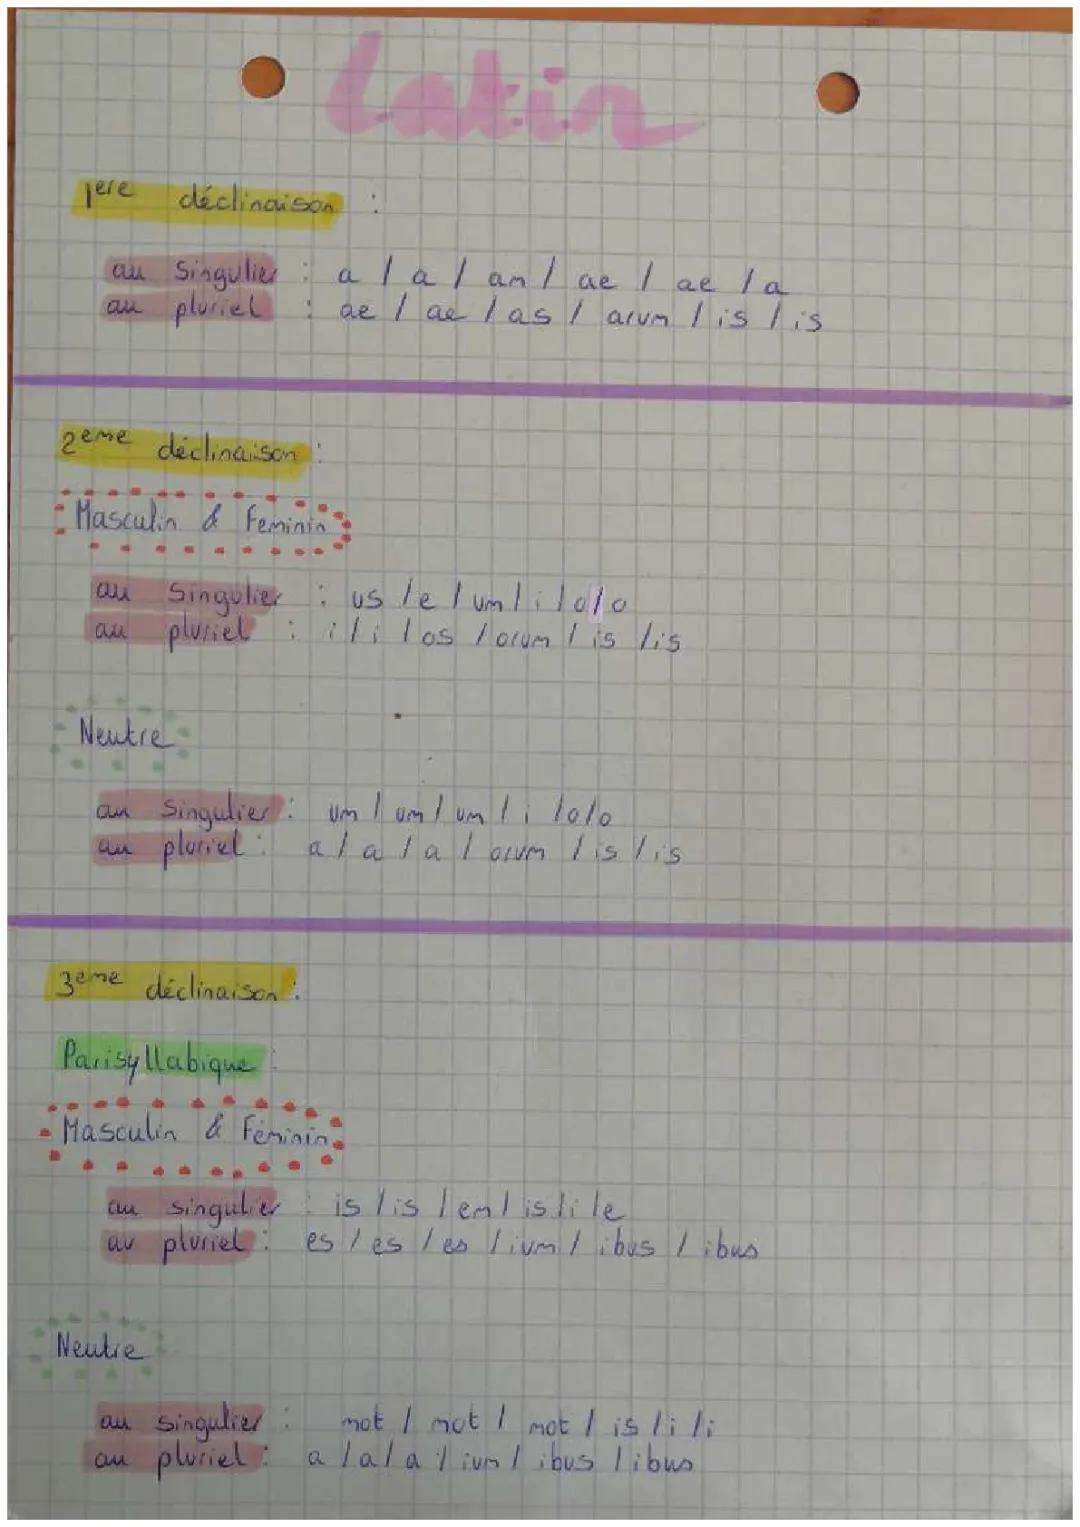 Latin
1ere déclinaison :
au Singulier : a / a / am / ae / ae / a
au pluriel : ae / ae / as / arum / is / is
2eme déclinaison :
Masculin & Feminin
au Singulier : us / e / um / i / o / o
au pluriel : i / i / os / orum / is / is
Neutre
au Singulier : um / um / um / i / o / o
au pluriel : a / a / a / orum / is / is
3eme déclinaison :
Parisyllabique :
Masculin & Féminin
au singulier : is / is / em / is / i / e
au pluriel : es / es / es / ium / ibus / ibus
Neutre
au singulier : mot / mot / mot / is / i / i
au pluriel : a / a / a / ium / ibus / ibus